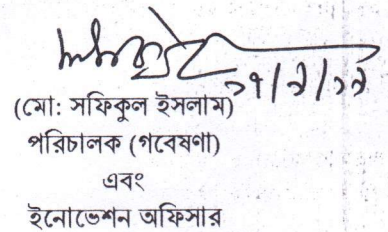 (মো: সফিকুল ইসলাম)
পরিচালক (গবেষণা)
এবং
ইনোভেশন অফিসার